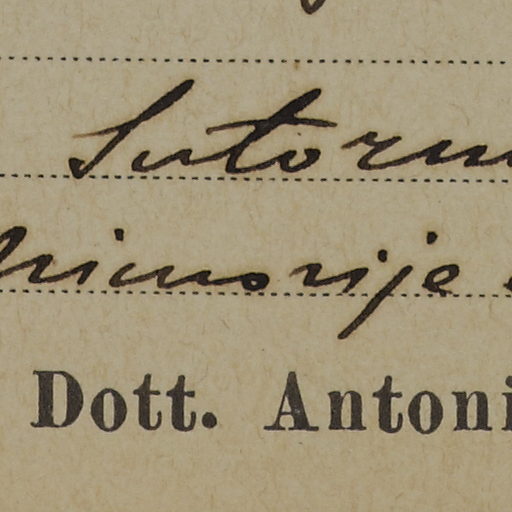 Sutorm
Primorije
Dott. Antoni